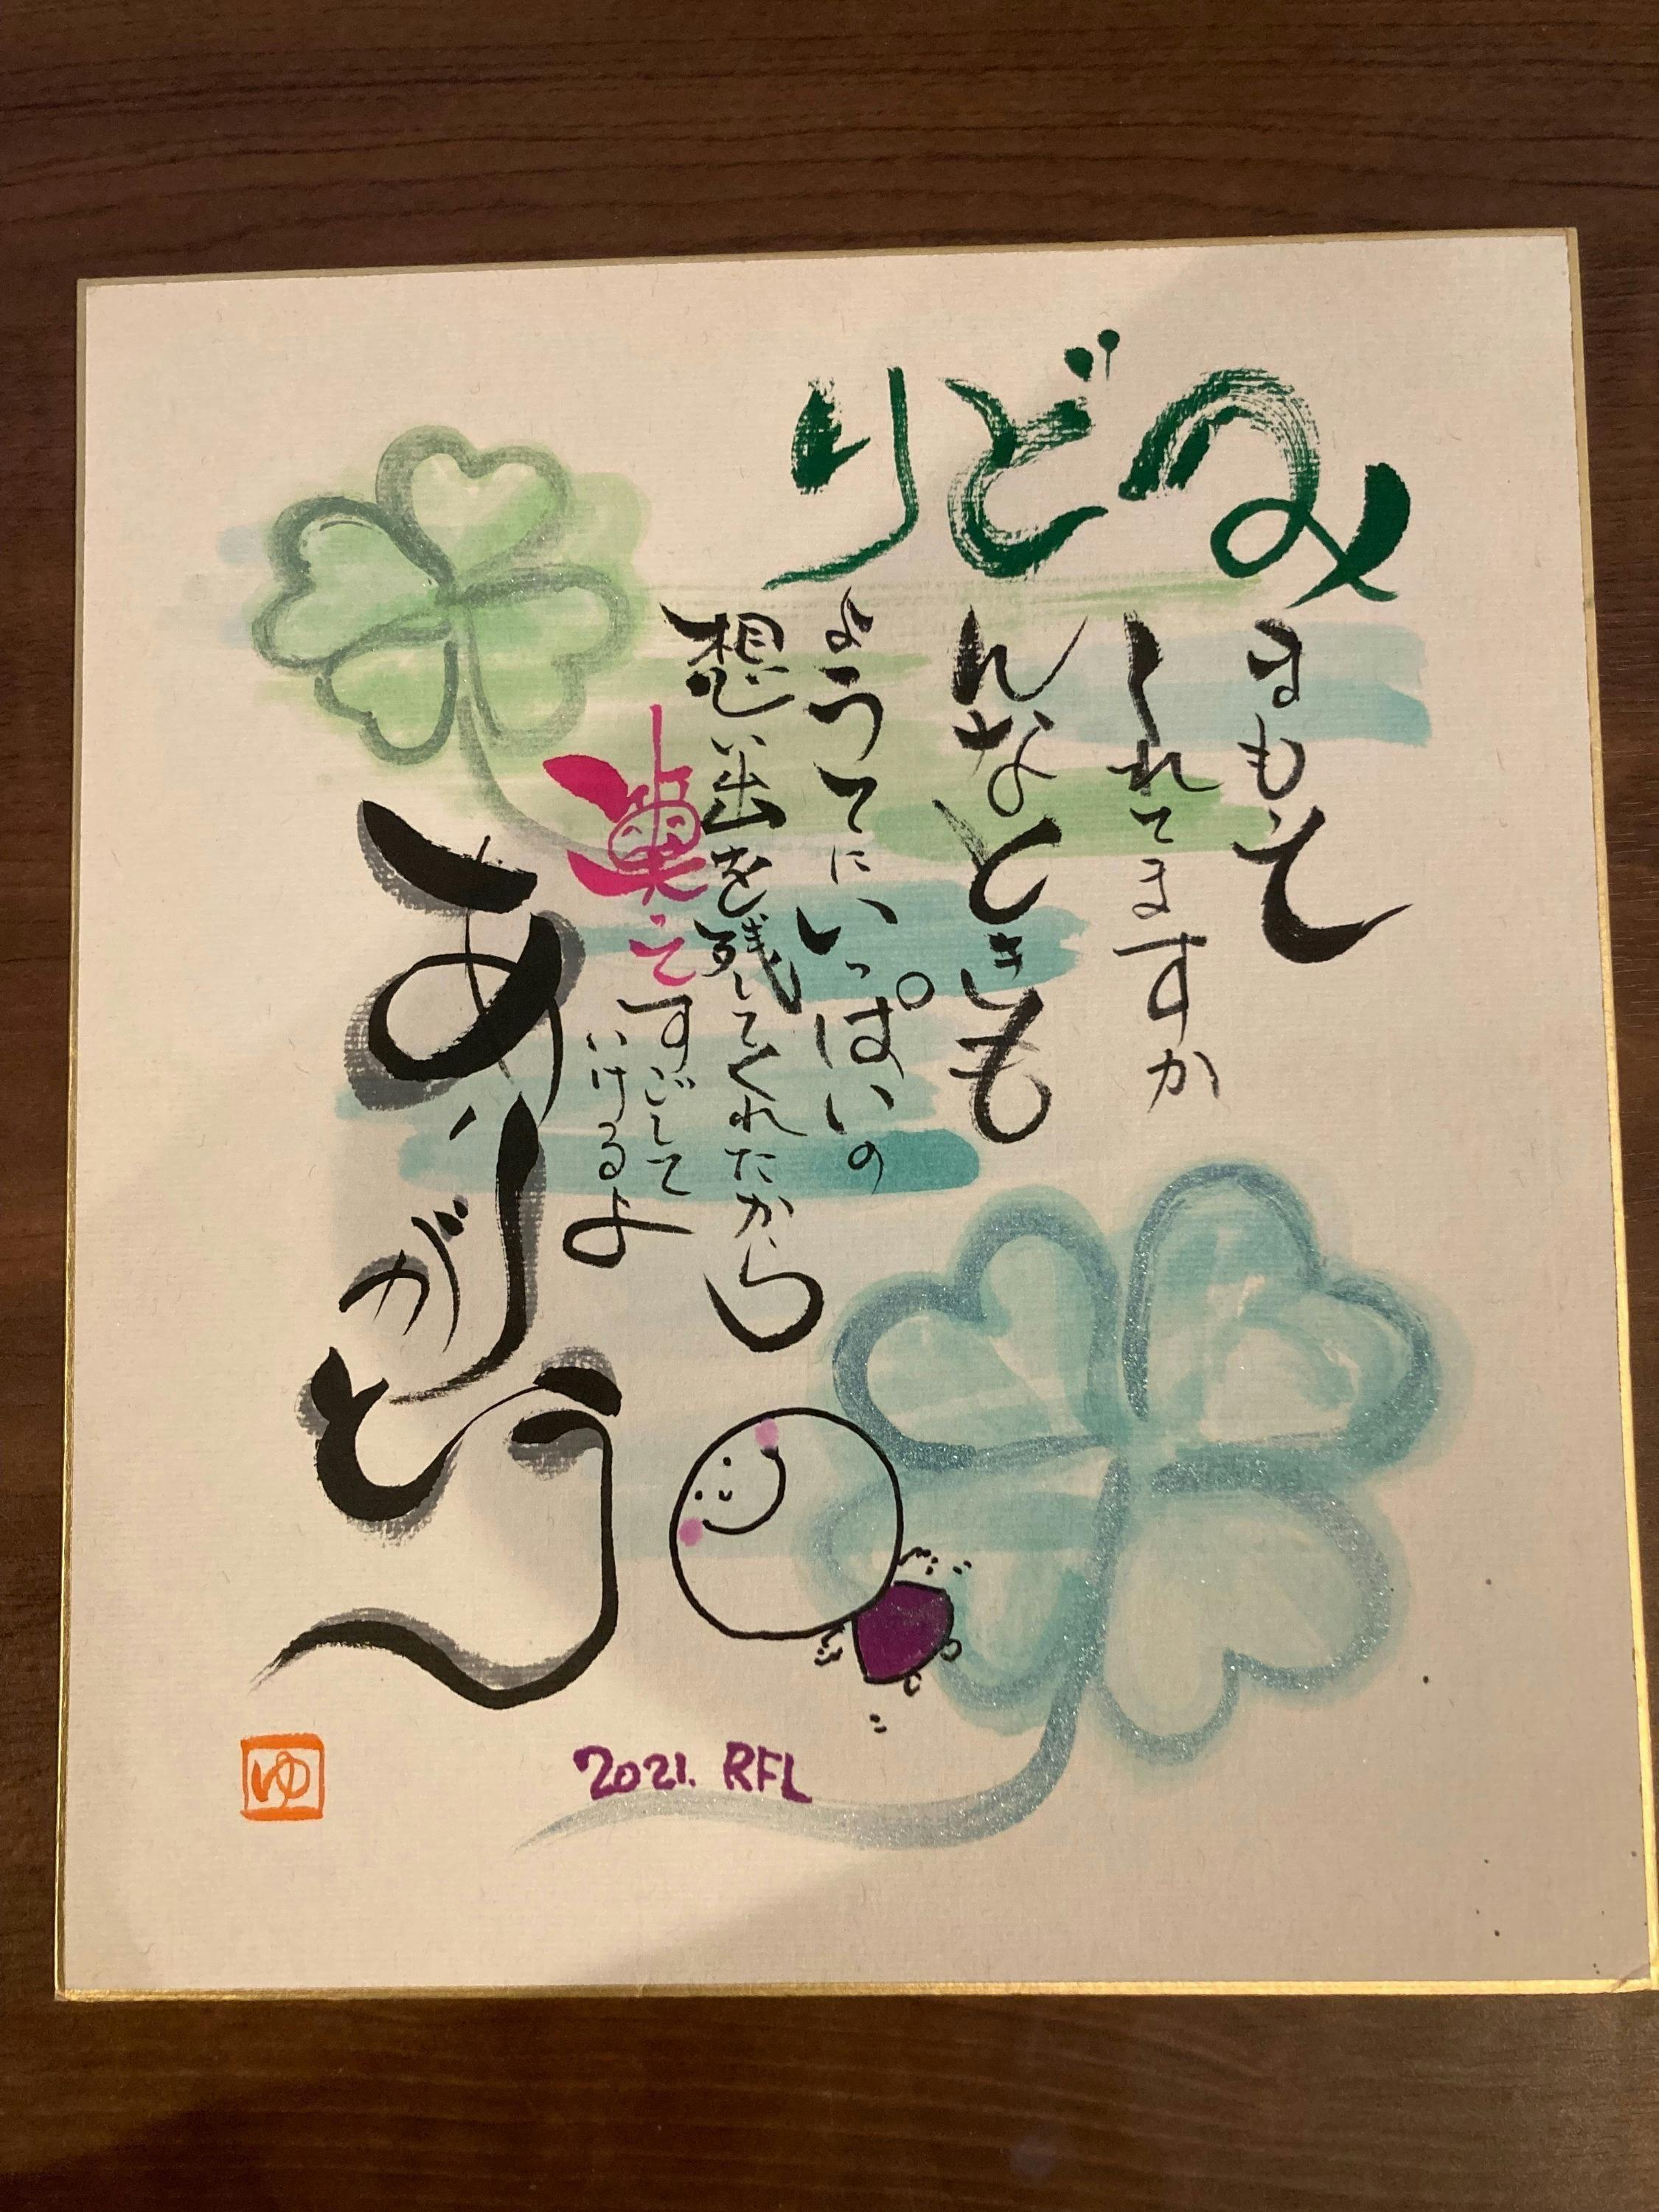 みどり
まもって
くれてますか
んなときも
ょうてにいっぱいの
想い出を残してくれたから
笑ってすごして
いけるよ
ありがとう
2021. RFL
ゆ